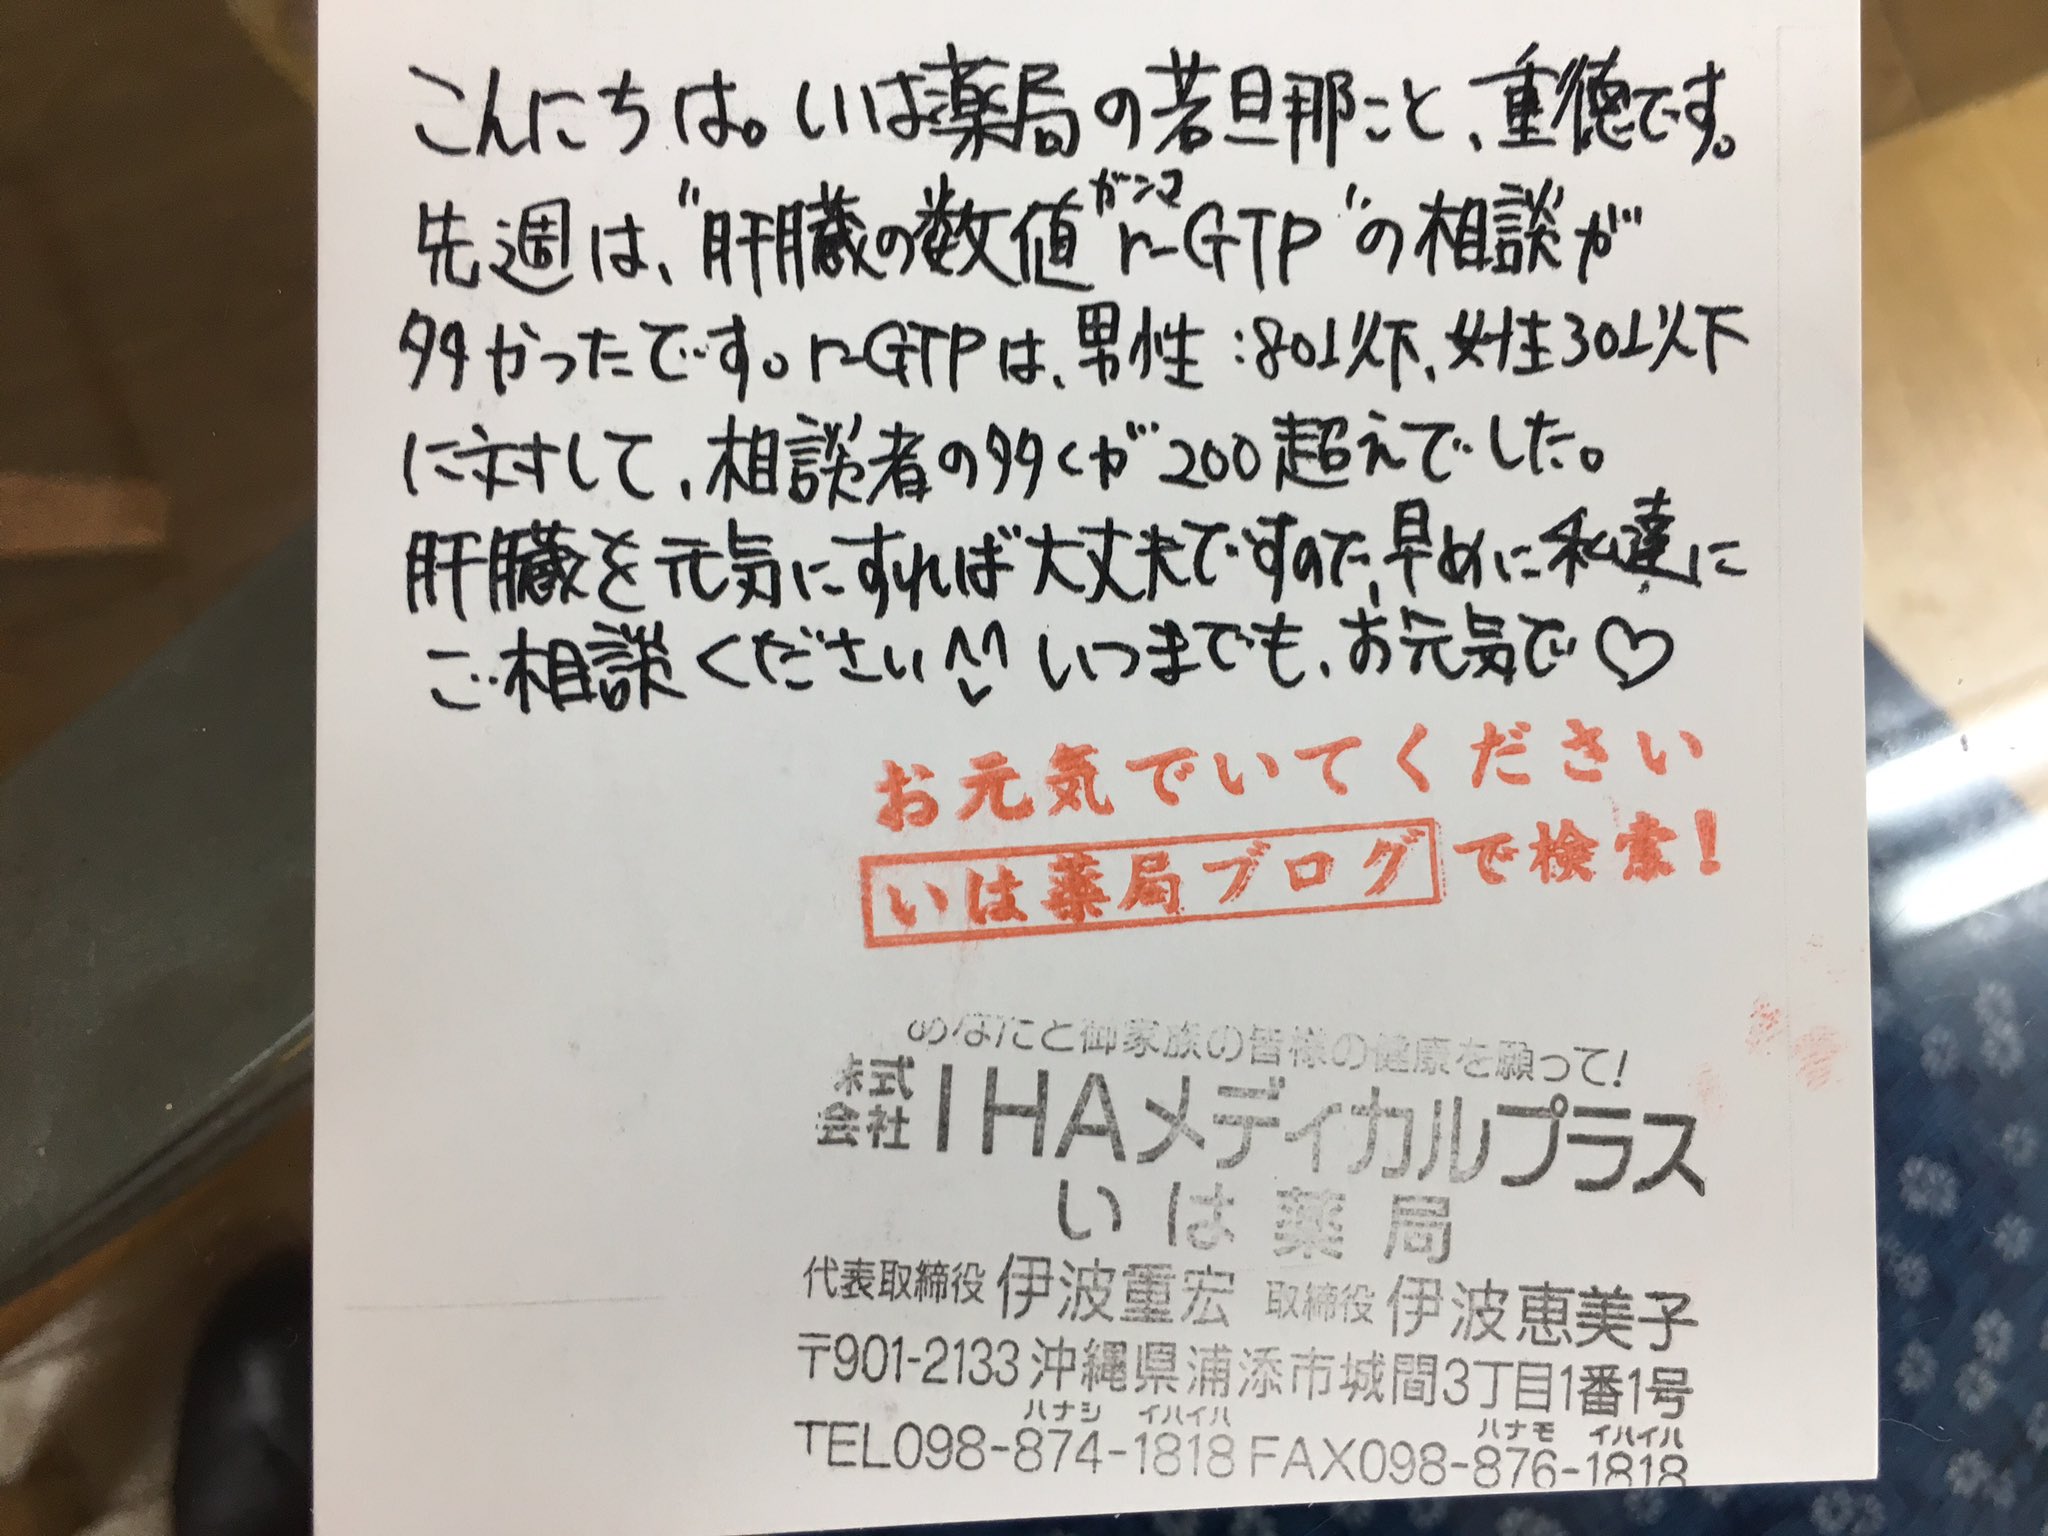 こんにちは。いは薬局の若旦那こと、重徳です。
先週は、"肝臓の数値γ-GTP"の相談が
ガンマ
多かったです。γ-GTPは、男性:80以下、女性30以下
に対して、相談者の多くが200超えでした。
肝臓を元気にすれば大丈夫ですので、早めに私達に
ご相談ください^^ いつまでも、お元気で♡
お元気でいてください
いは薬局ブログで検索!
あなたと御家族の皆様の健康を願って!
株式会社IHAメディカルプラス
いは薬局
代表取締役 伊波重宏 取締役 伊波恵美子
〒901-2133沖縄県浦添市城間3丁目1番1号
ハナシ イハイハ ハナモ イハイハ
TEL098-874-1818 FAX098-876-1818